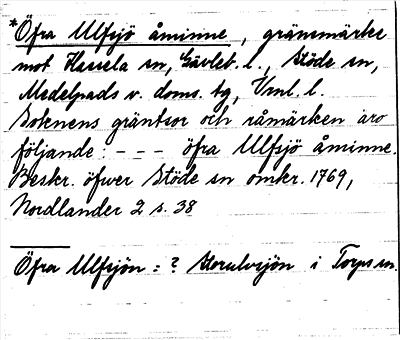 *Öfra Ulfsjö åminne, gränsmärke
mot Hassela sn, Gävleb. l., Stöde sn,
Medelpads v. doms. tg, Vnl. l.
Soknens gräntsor och råmärken äro
följande: - - - öfra Ulfsjö åminne.
Beskr. öfwer Stöde sn omkr. 1769,
Nordlander 2 s. 38
Öfra Ulfsjön = ? Storulvsjön i Torps sn.